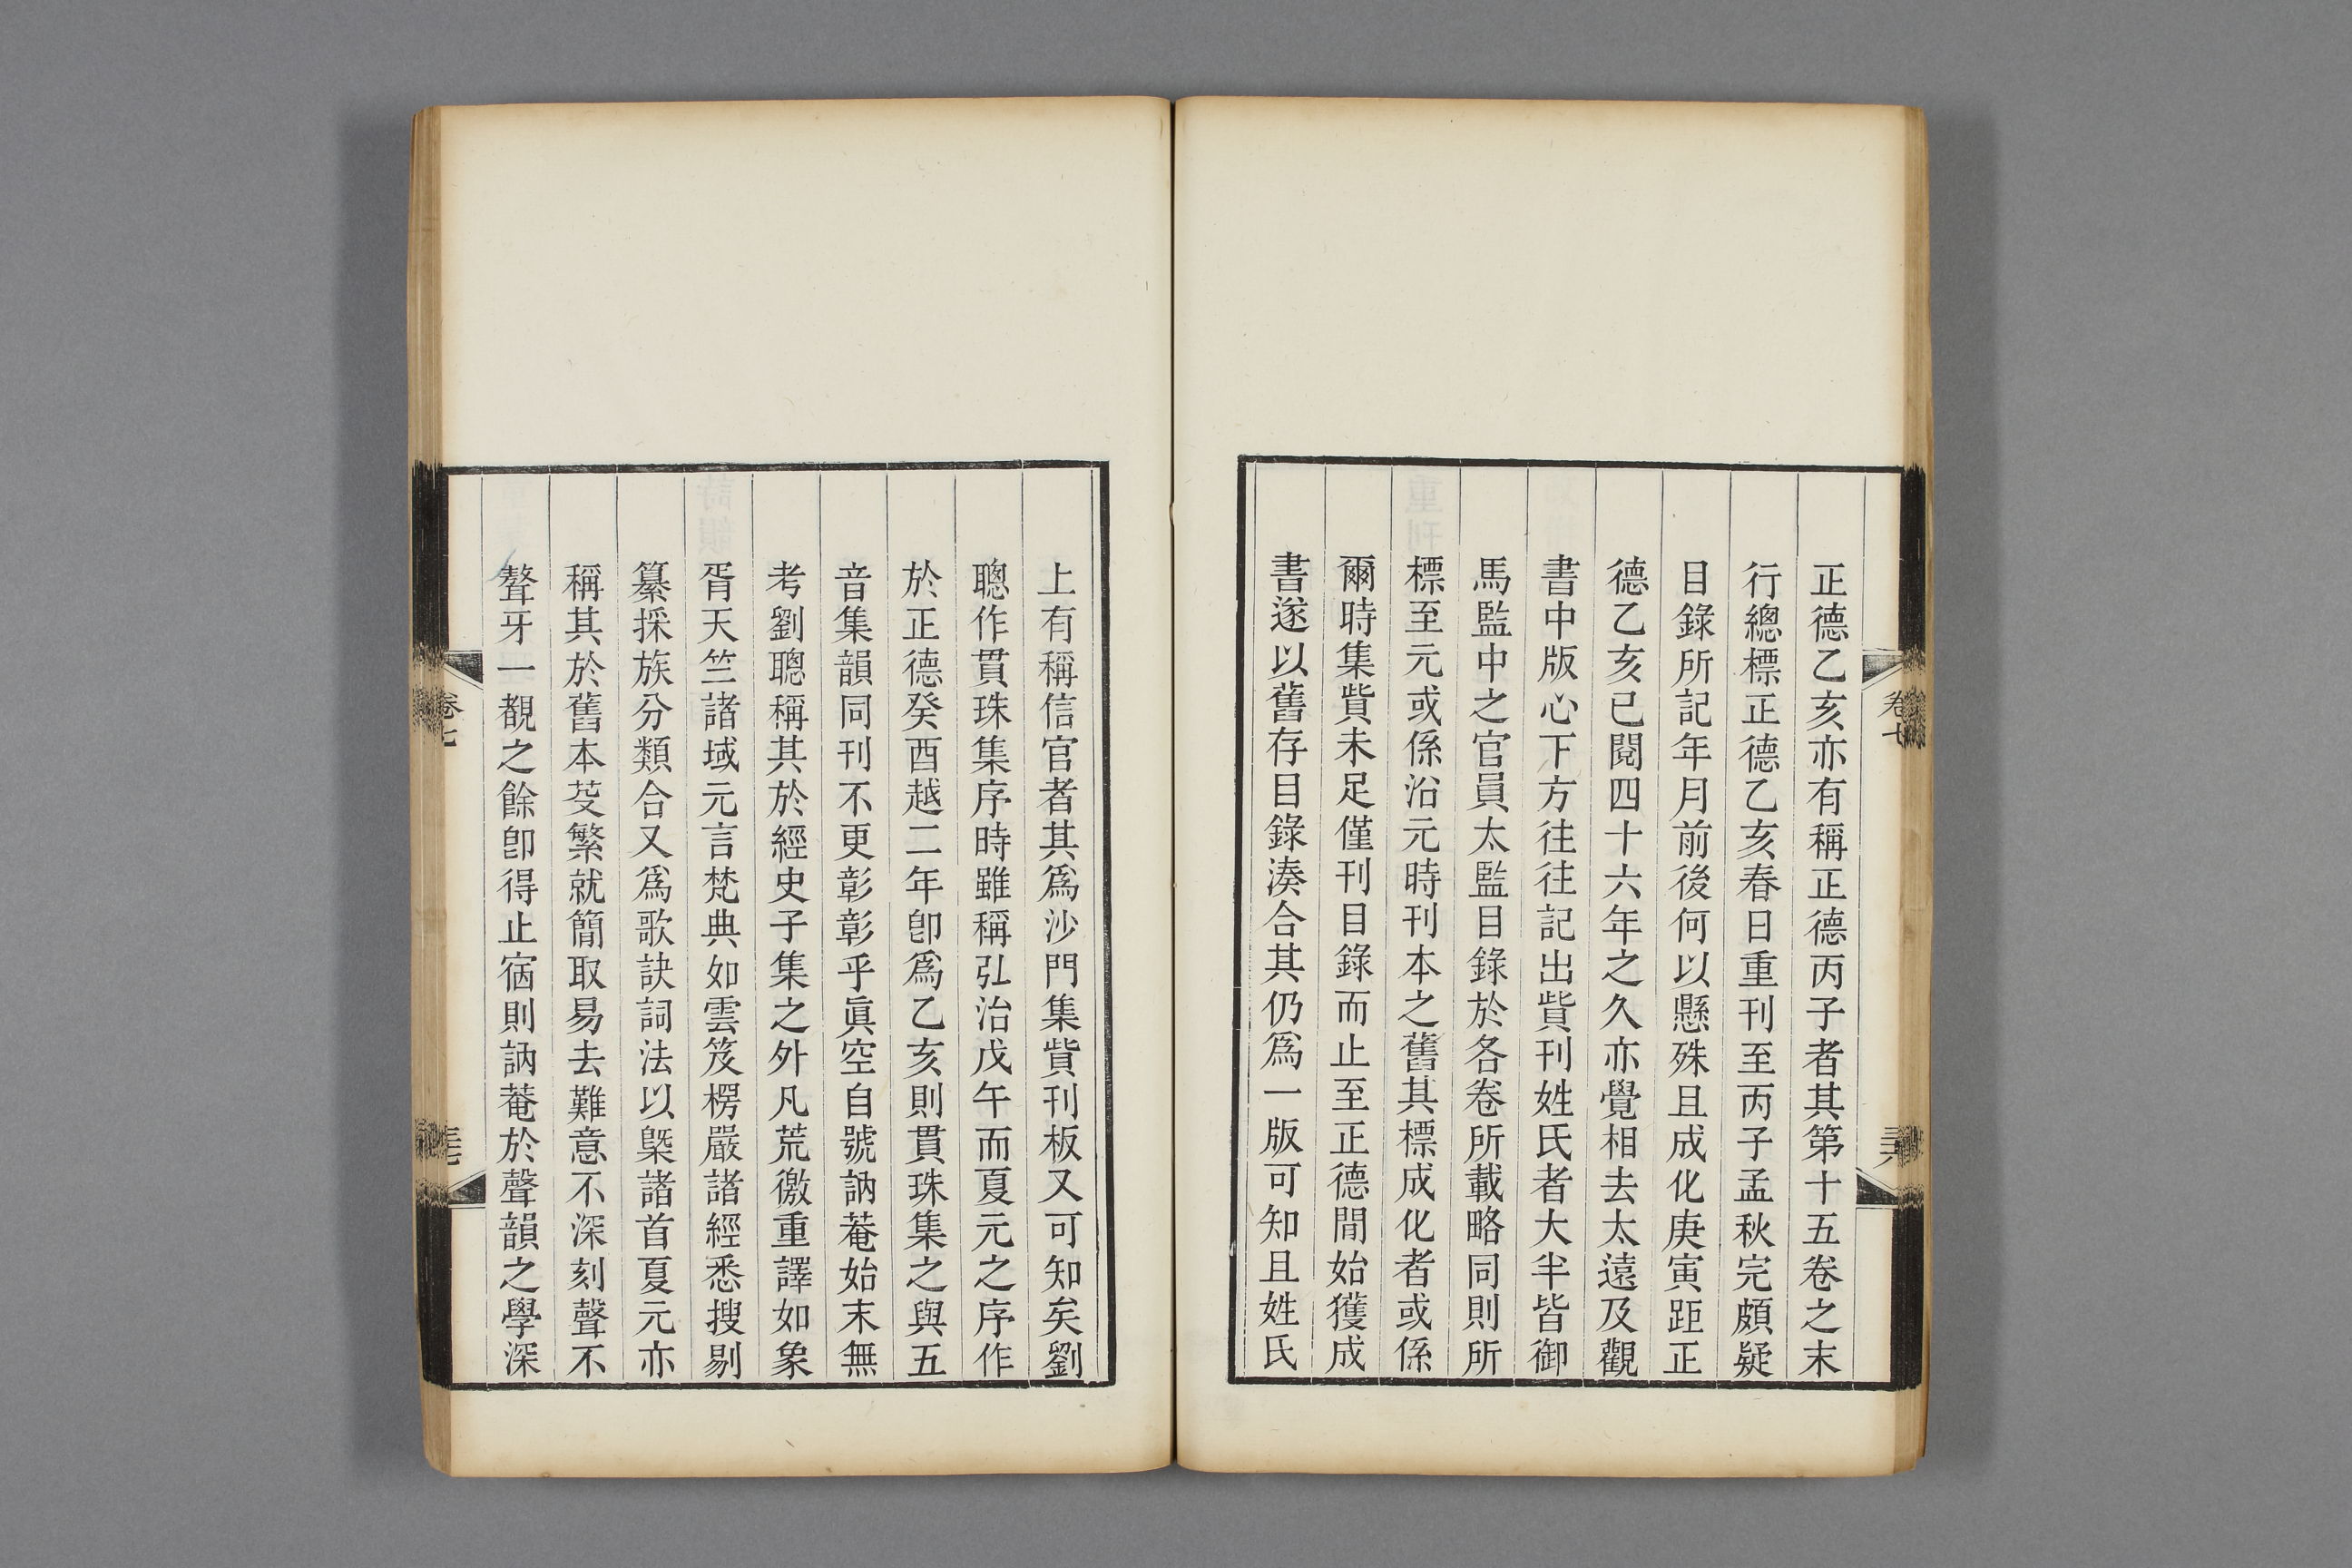 正德乙亥亦有稱正德丙子者其第十五卷之末
行總標正德乙亥春日重刊至丙子孟秋完頗疑
目錄所記年月前後何以懸殊且成化庚寅距正
德乙亥已閱四十六年之久亦覺相去太遠及觀
書中版心下方往往記出貲刊姓氏者大半皆御
馬監中之官員太監目錄於各卷所載略同則所
標至元或係沿元時刊本之舊其標成化者或係
爾時集貲未足僅刊目錄而止至正德閒始獲成
書遂以舊存目錄湊合其仍爲一版可知且姓氏
上有稱信官者其爲沙門集貲刊板又可知矣劉
聰作貫珠集序時雖稱弘治戊午而夏元之序作
於正德癸酉越二年卽爲乙亥則貫珠集之與五
音集韻同刊不更彰彰乎眞空自號訥菴始末無
考劉聰稱其於經史子集之外凡荒徼重譯如象
胥天竺諸域元言梵典如雲笈楞嚴諸經悉搜剔
纂採族分類合又爲歌訣詞法以檃諸首夏元亦
稱其於舊本芟繁就簡取易去難意不深刻聲不
聱牙一覩之餘卽得止宿則訥菴於聲韻之學深
卷七
卷七